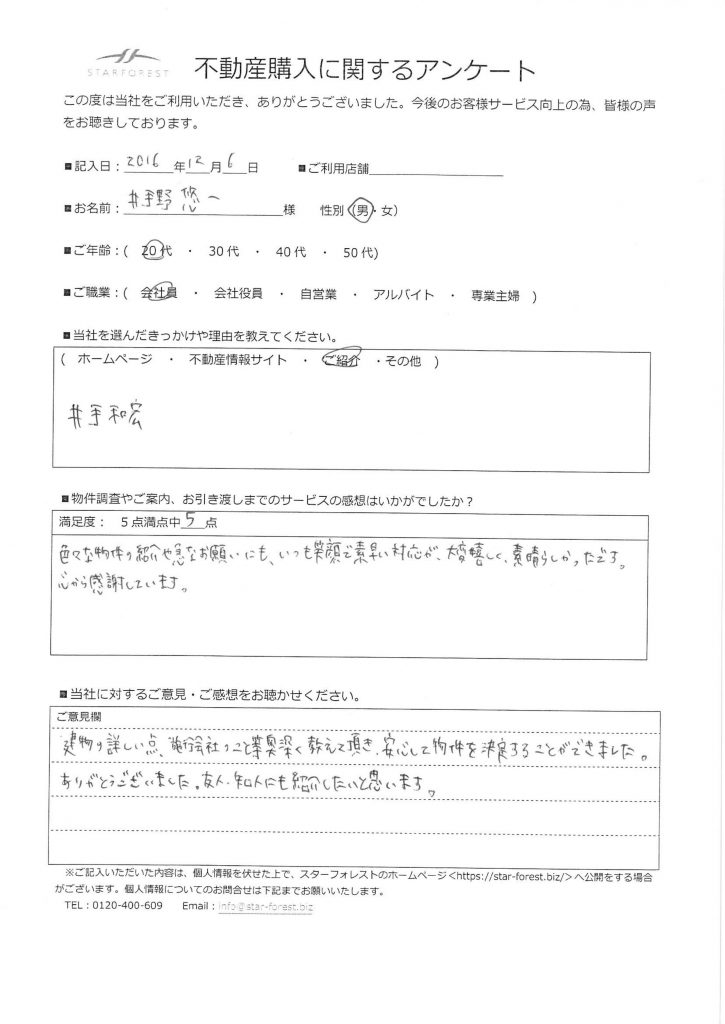 STARFOREST 不動産購入に関するアンケート
この度は当社をご利用いただき、ありがとうございました。今後のお客様サービス向上の為、皆様の声
をお聴きしております。
■記入日：2016年12月6日 ■ご利用店舗
■お名前：井手野 悠一 様 性別（男・女）
■ご年齢：( 20代 ・ 30代 ・ 40代 ・ 50代)
■ご職業：( 会社員 ・ 会社役員 ・ 自営業 ・ アルバイト ・ 専業主婦 )
■当社を選んだきっかけや理由を教えてください。
( ホームページ ・ 不動産情報サイト ・ ご紹介 ・その他 )
井手和宏
■物件調査やご案内、お引き渡しまでのサービスの感想はいかがでしたか？
満足度： 5点満点中5点
色々な物件の紹介や急なお願いにも、いつも笑顔で素早い対応が、大変嬉しく、素晴らしかったです。
心から感謝しています。
■当社に対するご意見・ご感想をお聴かせください。
ご意見欄
建物の詳しい点、施行会社のこと等奥深く教えて頂き、安心して物件を決定することができました。
ありがとうございました。友人・知人にも紹介したいと思います。
※ご記入いただいた内容は、個人情報を伏せた上で、スターフォレストのホームページ<https://star-forest.biz/>へ公開をする場合
がございます。個人情報についてのお問合せは下記までお願いいたします。
TEL：0120-400-609 Email：info@star-forest.biz